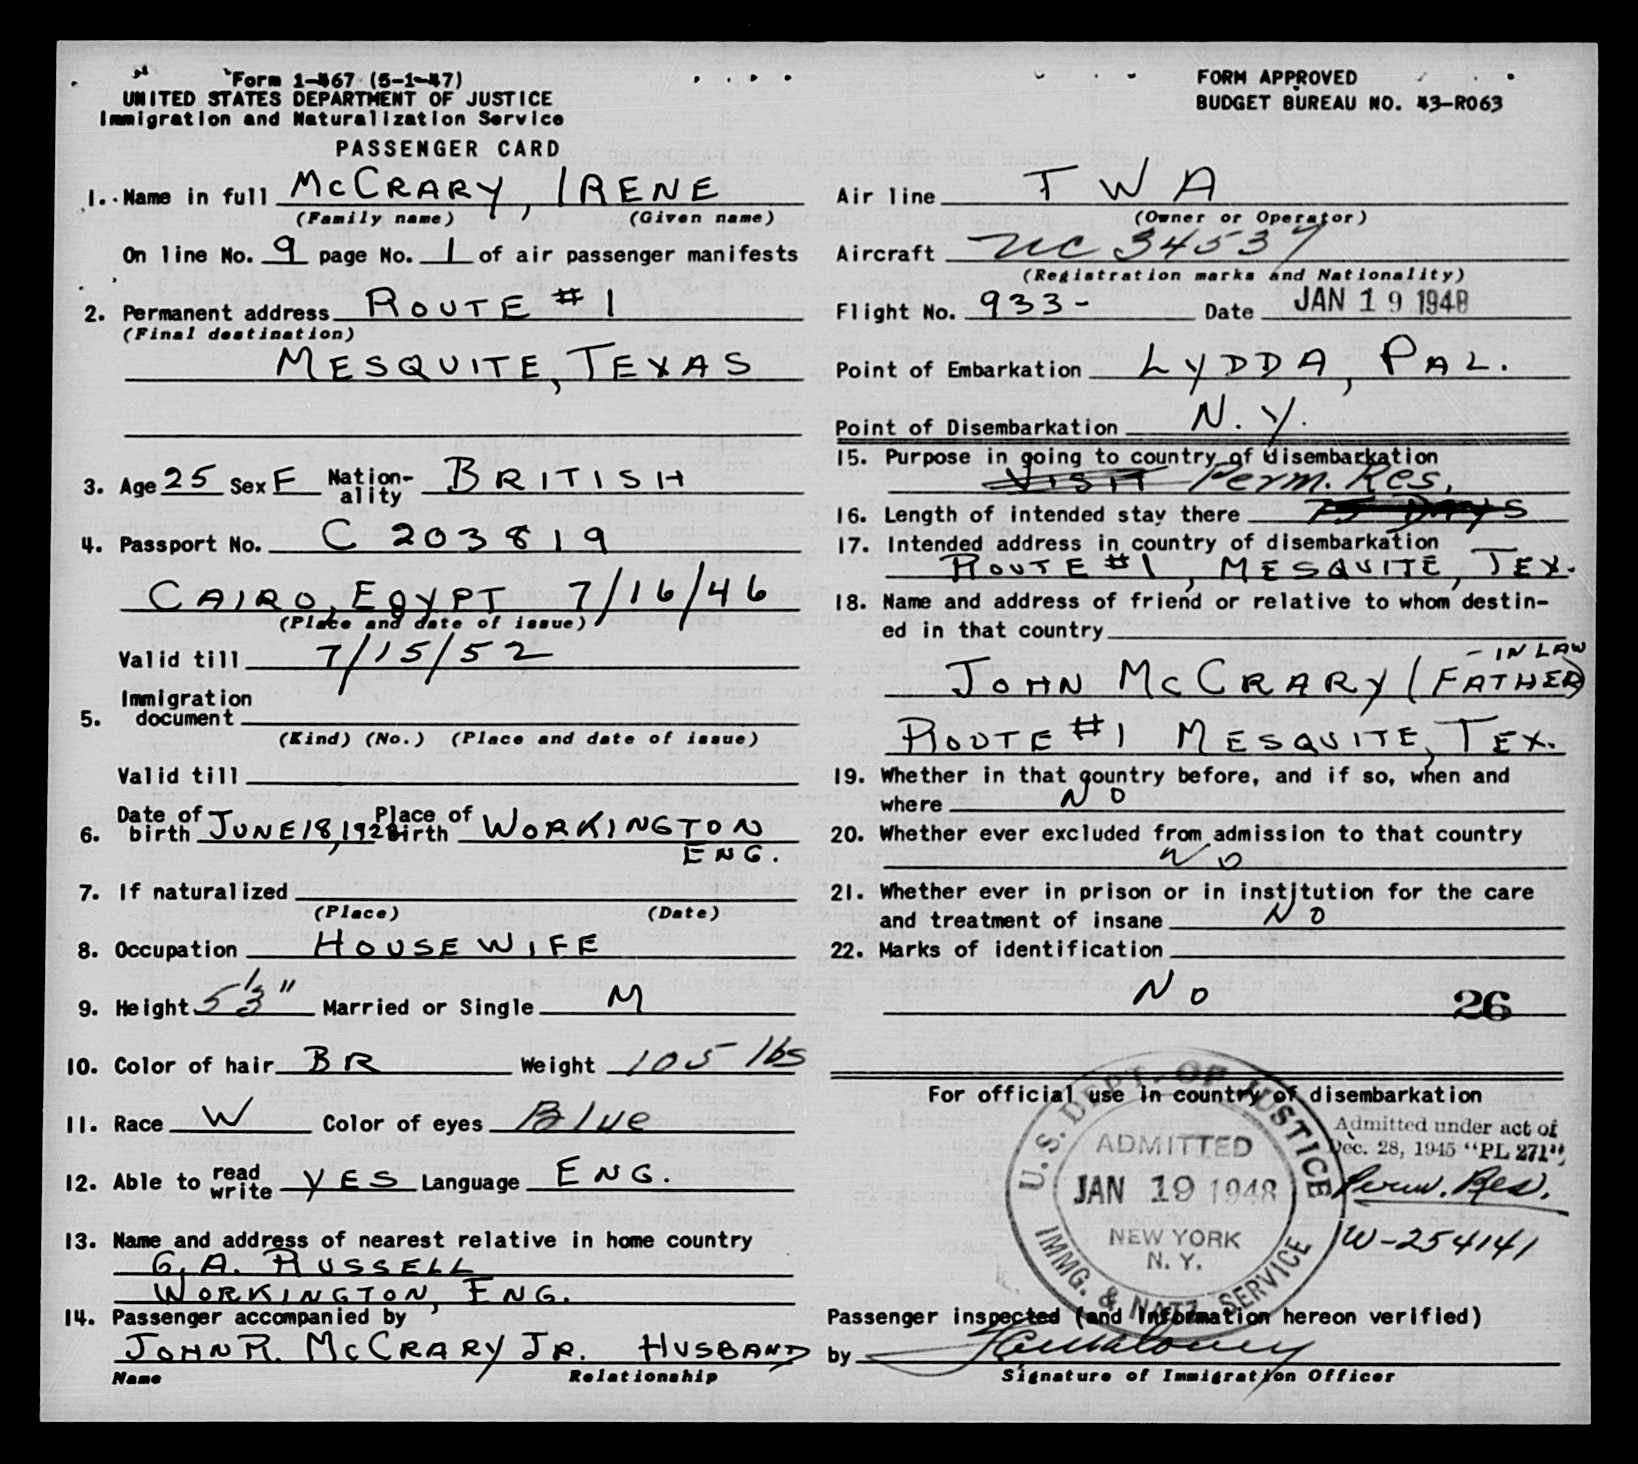 Form I-467 (5-1-47)
UNITED STATES DEPARTMENT OF JUSTICE
Immigration and Naturalization Service
PASSENGER CARD
FORM APPROVED
BUDGET BUREAU NO. 43-R063
1. Name in full McCRARY, IRENE
(Family name) (Given name)
On line No. 9 page No. 1 of air passenger manifests
2. Permanent address ROUTE #1
(Final destination)
MESQUITE, TEXAS
3. Age 25 Sex F Nation-ality BRITISH
4. Passport No. C 203819
CAIRO, EGYPT 7/16/46
(Place and date of issue)
Valid till 7/15/52
5. Immigration document
(Kind) (No.) (Place and date of issue)
Valid till
6. Date of birth JUNE 18, 1922 Place of birth WORKINGTON
ENG.
7. If naturalized
(Place) (Date)
8. Occupation HOUSEWIFE
9. Height 5'3" Married or Single M
10. Color of hair BR Weight 105 lbs
11. Race W Color of eyes Blue
12. Able to read write YES Language ENG.
13. Name and address of nearest relative in home country
G. A. RUSSELL
WORKINGTON, ENG.
14. Passenger accompanied by
JOHN R. McCRARY JR. HUSBAND
Name Relationship
Air line TWA
(Owner or Operator)
Aircraft NC 34537
(Registration marks and Nationality)
Flight No. 933- Date JAN 19 1948
Point of Embarkation LYDDA, PAL.
Point of Disembarkation N.Y.
15. Purpose in going to country of disembarkation
VISIT Perm. Res.
16. Length of intended stay there 75 DAYS
17. Intended address in country of disembarkation
ROUTE #1, MESQUITE, TEX.
18. Name and address of friend or relative to whom destin-
ed in that country
- IN LAW
JOHN McCRARY (FATHER)
ROUTE #1 MESQUITE, TEX.
19. Whether in that country before, and if so, when and
where NO
20. Whether ever excluded from admission to that country
NO
21. Whether ever in prison or in institution for the care
and treatment of insane NO
22. Marks of identification
NO
26
For official use in country of disembarkation
U.S. DEPT. OF JUSTICE
ADMITTED
JAN 19 1948
NEW YORK
N.Y.
IMMG. & NATZ. SERVICE
Admitted under act of
Dec. 28, 1945 "PL 271",
Perm. Res.
W-254141
Passenger inspected (and information hereon verified)
by
Signature of Immigration Officer